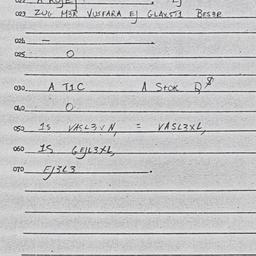 023 ZUG M3R VUSFARA EJ GLAXST3 BES3R
024 —
025 O
030 A T1C A Stok Q $
040 O
050 1S VASL3VN, = VASL3XL,
060 1S GEJL3XL,
070 EJ3L3